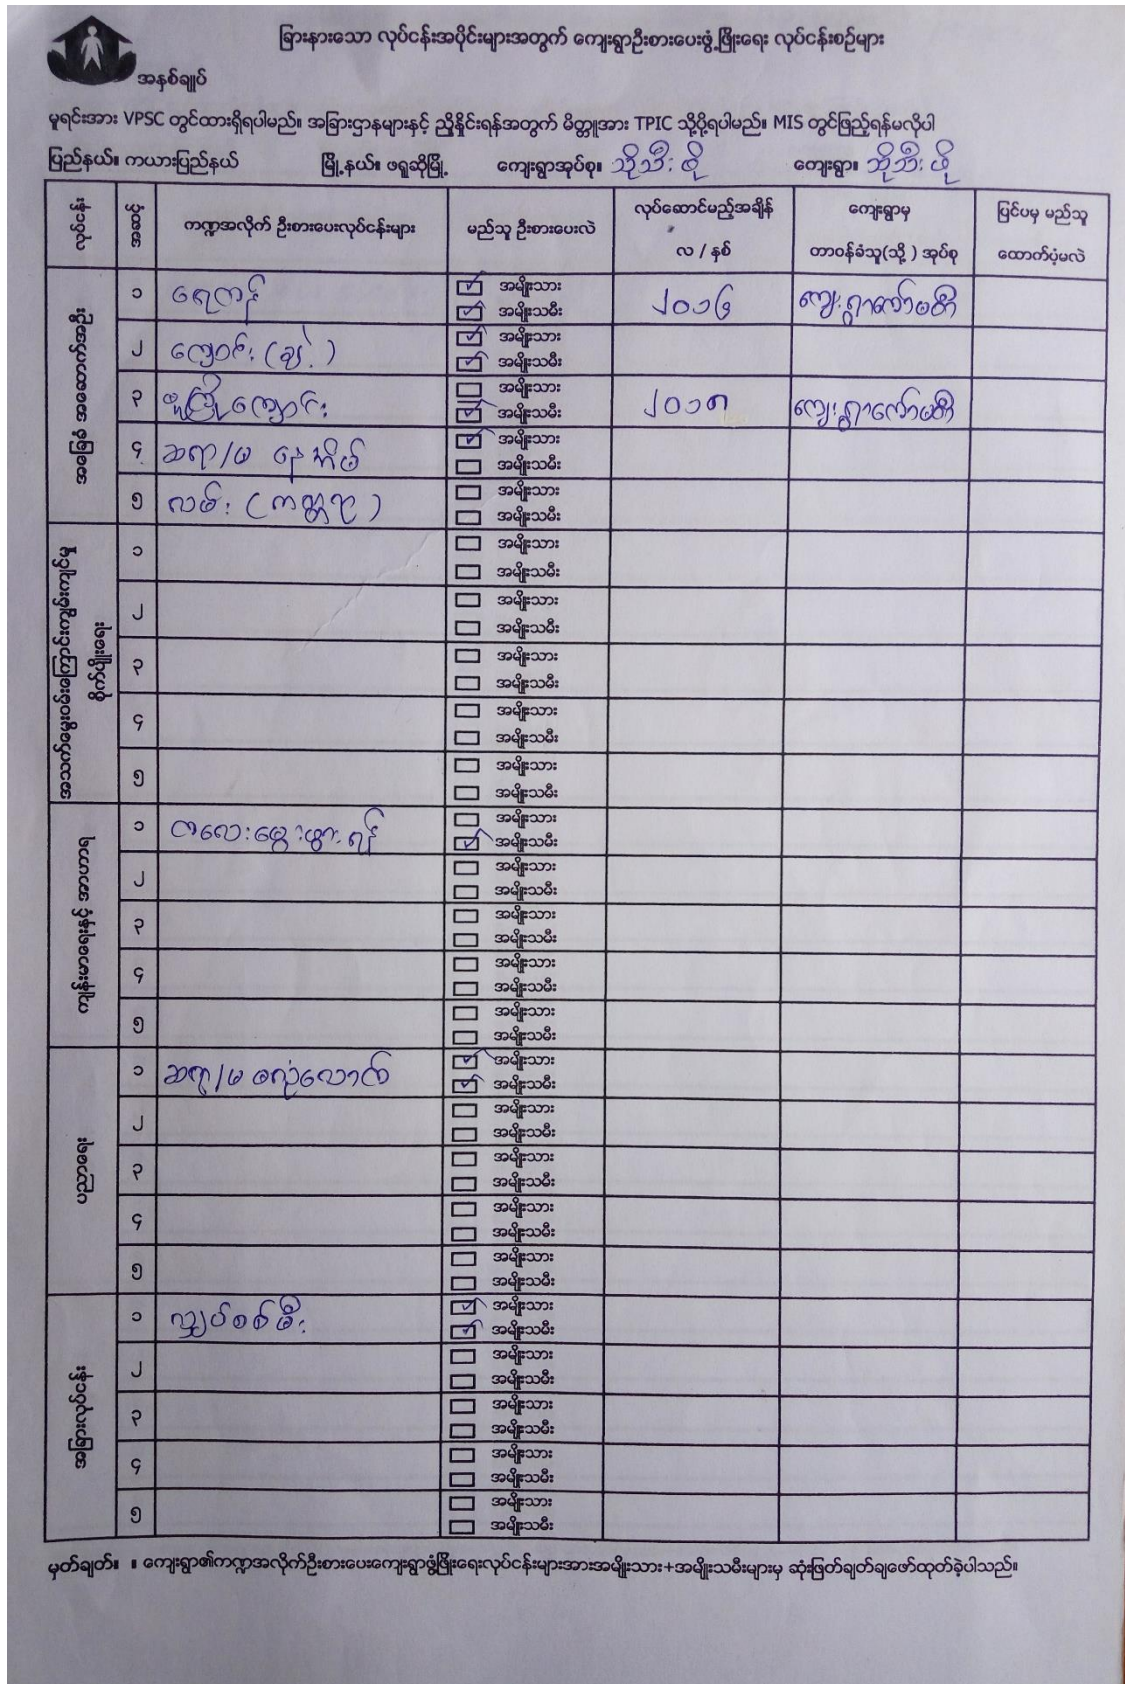 ခြားနားသော လုပ်ငန်းအပိုင်းများအတွက် ကျေးရွာဦးစားပေးဖွံ့ဖြိုးရေး လုပ်ငန်းစဉ်များ
အနှစ်ချုပ်
မူရင်းအား VPSC တွင်ထားရှိရပါမည်။ အခြားဌာနများနှင့် ညှိနှိုင်းရန်အတွက် မိတ္တူအား TPIC သို့ပို့ရပါမည်။ MIS တွင်ဖြည့်ရန်မလိုပါ
ပြည်နယ်။ ကယားပြည်နယ် မြို့နယ်။ ဖရူဆိုမြို့ ကျေးရွာအုပ်စု။ ကျေးရွာ။
လုပ်ငန်း အဆင့် ကဏ္ဍအလိုက် ဦးစားပေးလုပ်ငန်းများ မည်သူ ဦးစားပေးလဲ လုပ်ဆောင်မည့်အချိန် လ / နှစ် ကျေးရွာမှ တာဝန်ခံသူ(သို့) အုပ်စု ပြင်ပမှ မည်သူ ထောက်ပံ့မလဲ
အခြေခံ အဆောက်အဦး
၁ ရေကန် အမျိုးသား အမျိုးသမီး ၂၀၁၆ ကျေးရွာကော်မတီ
၂ ကျောင်း (ချဲ့) အမျိုးသား အမျိုးသမီး
၃ မူကြိုကျောင်း အမျိုးသား အမျိုးသမီး ၂၀၁၈ ကျေးရွာကော်မတီ
၄ ဆရာ/မ နေအိမ် အမျိုးသား အမျိုးသမီး
၅ လမ်း (ကတ္တရာ) အမျိုးသား အမျိုးသမီး
အသက်မွေးဝမ်းကြောင်း
စိုက်ပျိုးရေး
၁ အမျိုးသား အမျိုးသမီး
၂ အမျိုးသား အမျိုးသမီး
၃ အမျိုးသား အမျိုးသမီး
၄ အမျိုးသား အမျိုးသမီး
၅ အမျိုးသား အမျိုးသမီး
ကျန်းမာရေးနှင့် အာဟာရ
၁ ကလေးမွေးဖွားရန် အမျိုးသား အမျိုးသမီး
၂ အမျိုးသား အမျိုးသမီး
၃ အမျိုးသား အမျိုးသမီး
၄ အမျိုးသား အမျိုးသမီး
၅ အမျိုးသား အမျိုးသမီး
ပညာရေး
၁ ဆရာ/မ မလုံလောက် အမျိုးသား အမျိုးသမီး
၂ အမျိုးသား အမျိုးသမီး
၃ အမျိုးသား အမျိုးသမီး
၄ အမျိုးသား အမျိုးသမီး
၅ အမျိုးသား အမျိုးသမီး
အခြားလုပ်ငန်း
၁ လျှပ်စစ်မီး အမျိုးသား အမျိုးသမီး
၂ အမျိုးသား အမျိုးသမီး
၃ အမျိုးသား အမျိုးသမီး
၄ အမျိုးသား အမျိုးသမီး
၅ အမျိုးသား အမျိုးသမီး
မှတ်ချတ်။ ။ ကျေးရွာ၏ကဏ္ဍအလိုက်ဦးစားပေးကျေးရွာဖွံ့ဖြိုးရေးလုပ်ငန်းများအားအမျိုးသား+အမျိုးသမီးများမှ ဆုံးဖြတ်ချတ်ချဖော်ထုတ်ခဲ့ပါသည်။